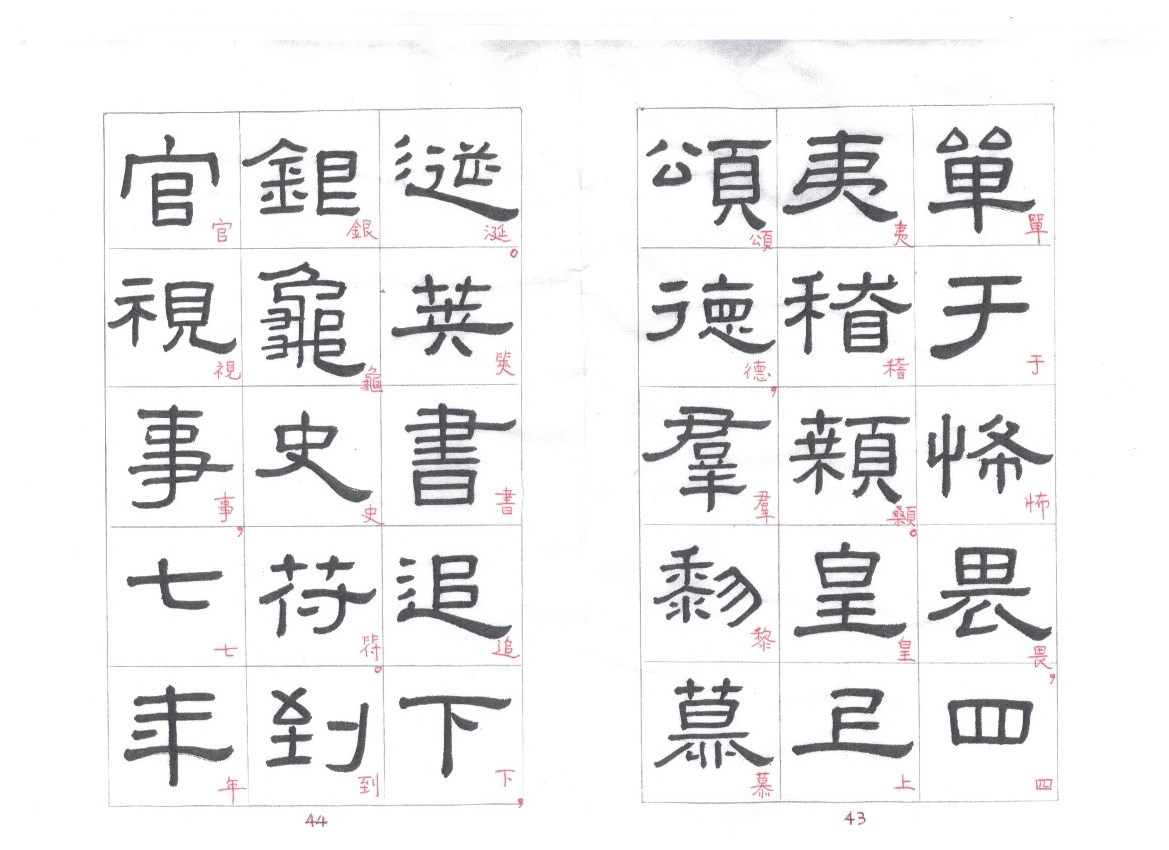 單于怖畏四
單于怖畏，四
夷稽顙皇上
夷稽顙。皇上
頌德羣黎慕
頌德，羣黎慕
43
涎莢書追下
涎。筴書追下，
銀龜史苻到
銀龜史符。到
官視事七年
官視事，七年
44